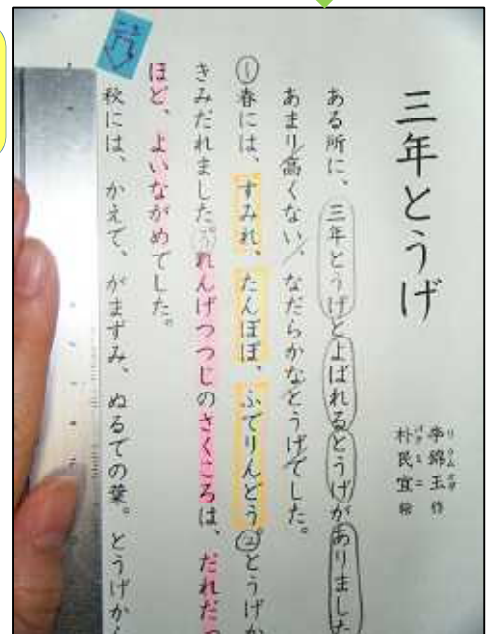 三年とうげ
李錦玉 作
朴民宜 絵
ある所に、三年とうげとよばれるとうげがありました
あまり高くない、なだらかなとうげでした。
①春には、すみれ、たんぽぽ、ふでりんどう。②とうげか
きみだれました。れんげつつじのさくころは、だれだっ
ほど、よいながめでした。
秋には、かえで、がまずみ、ぬるでの葉。とうげから